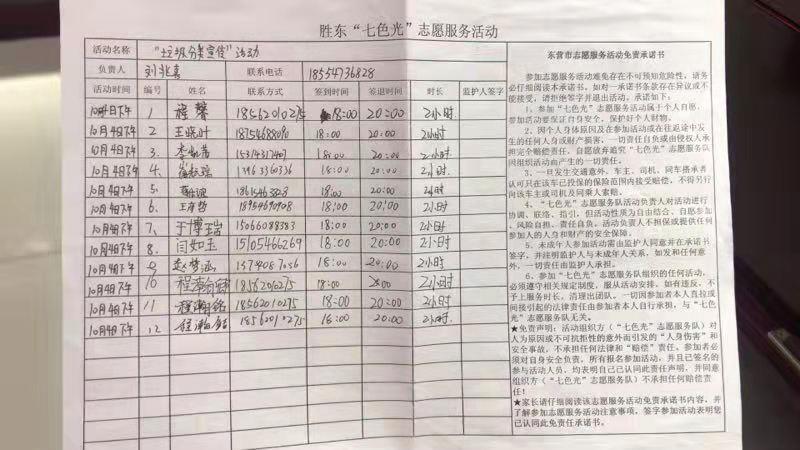 胜东“七色光”志愿服务活动
活动名称 “垃圾分类宣传”活动
负责人 联系电话 18554736828
活动时间 编号 姓名 联系方式 签到时间 签退时间 时长 监护人签字
10月4日下午 1 程馨 18562010275 18:00 20:00 2小时
10月4日下午 2 王晓叶 18:00 20:00 2小时
10月4日下午 3. 18:00 20:00 2小时
10月4日下午 4. 13963360336 18:00 20:00 2小时
10月4日下午 5 18:00 20:00 2小时
10月4日下午 6. 18954690908 18:00 20:00 2小时
10月4日下午 7. 于博瑞 15066088383 18:00 20:00 2小时
10月4日下午 8. 闫如玉 1510546269 18:00 20:00 2小时
10月4日下午 9 赵梦涵 18:00 20:00 2小时
10月4日下午 10 18562010275 18:00 2小时
10月4日下午 11 程瀚铭 18562010275 18:00 20:00 2小时
10月4日下午 12 程瀚铭 18562010275 18:00 20:00 2小时
东营市志愿服务活动免责承诺书
参加志愿服务活动难免存在不可预知危险性，请务
必仔细阅读本承诺书。如对一承诺书条款存在异议或不
能接受，请拒绝签字并退出活动。承诺如下：
1、参加“七色光”志愿服务活动属于个人自愿，
参加活动要保证自身安全，保护好个人财物。
2、因个人身体原因及在参加活动或在往返途中发
生的任何人身或财产损害，一切责任自负或由侵权人承
担完全赔偿责任，自愿放弃追究“七色光”志愿服务队
因组织活动而产生的一切责任。
3、一旦发生交通意外，车主、司机、同车搭乘者
认可只在该车已投保的保险范围内接受赔偿，不得另行
向该车主或司机及同乘人索赔。
4、“七色光”志愿服务队活动负责人对活动进行
协调、联络、指引，但活动性质为自由结合、自愿参加、
风险自担、责任自负。活动负责人不担保或提供任何
参加人的人身和财产的安全保障。
5、未成年人参加活动需由监护人同意并在承诺书
签字，并注明监护人与未成年人关系，如发和任何意
外，一切责任由监护人承担。
6、参加“七色光”志愿服务队组织的任何活动，
必须遵守相关规定制度，服从活动安排。如有违反，不
予上服务时长，清理出团队。一切因参加者本人直接或
间接引起的法律责任由参加者本人自行承担，与“七色
光”志愿服务队无关。
★免责声明：活动组织方（“七色光”志愿服务队）对
人为原因或不可抗拒性的意外而引发的“人身伤害”和
安全事故，不承担任何法律和“赔偿”责任。参加者必
须对自身安全负责，所有报名参加活动，并且已签名的
参与活动人员，均表明自己已同此责任声明，并同意
组织方（“七色光”志愿服务队）不承担任何赔偿责
任！
★家长请仔细阅读该志愿服务活动免责承诺书内容，并
了解参加志愿服务活动注意事项，签字参加活动表明您
已认同此免责任承诺书。